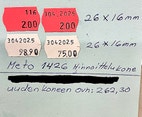 116 3042025
200 2.00 26 x 16mm
3042025 3042025
98.90 75.00 26 x 16mm
Meto 1426 Hinnoittelukone
uuden koneen ovh: 262,30